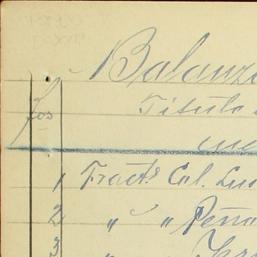 Balanz
Titulo
fos
me
1 Fractº Col. Lu
2 " " " Peña
3 "